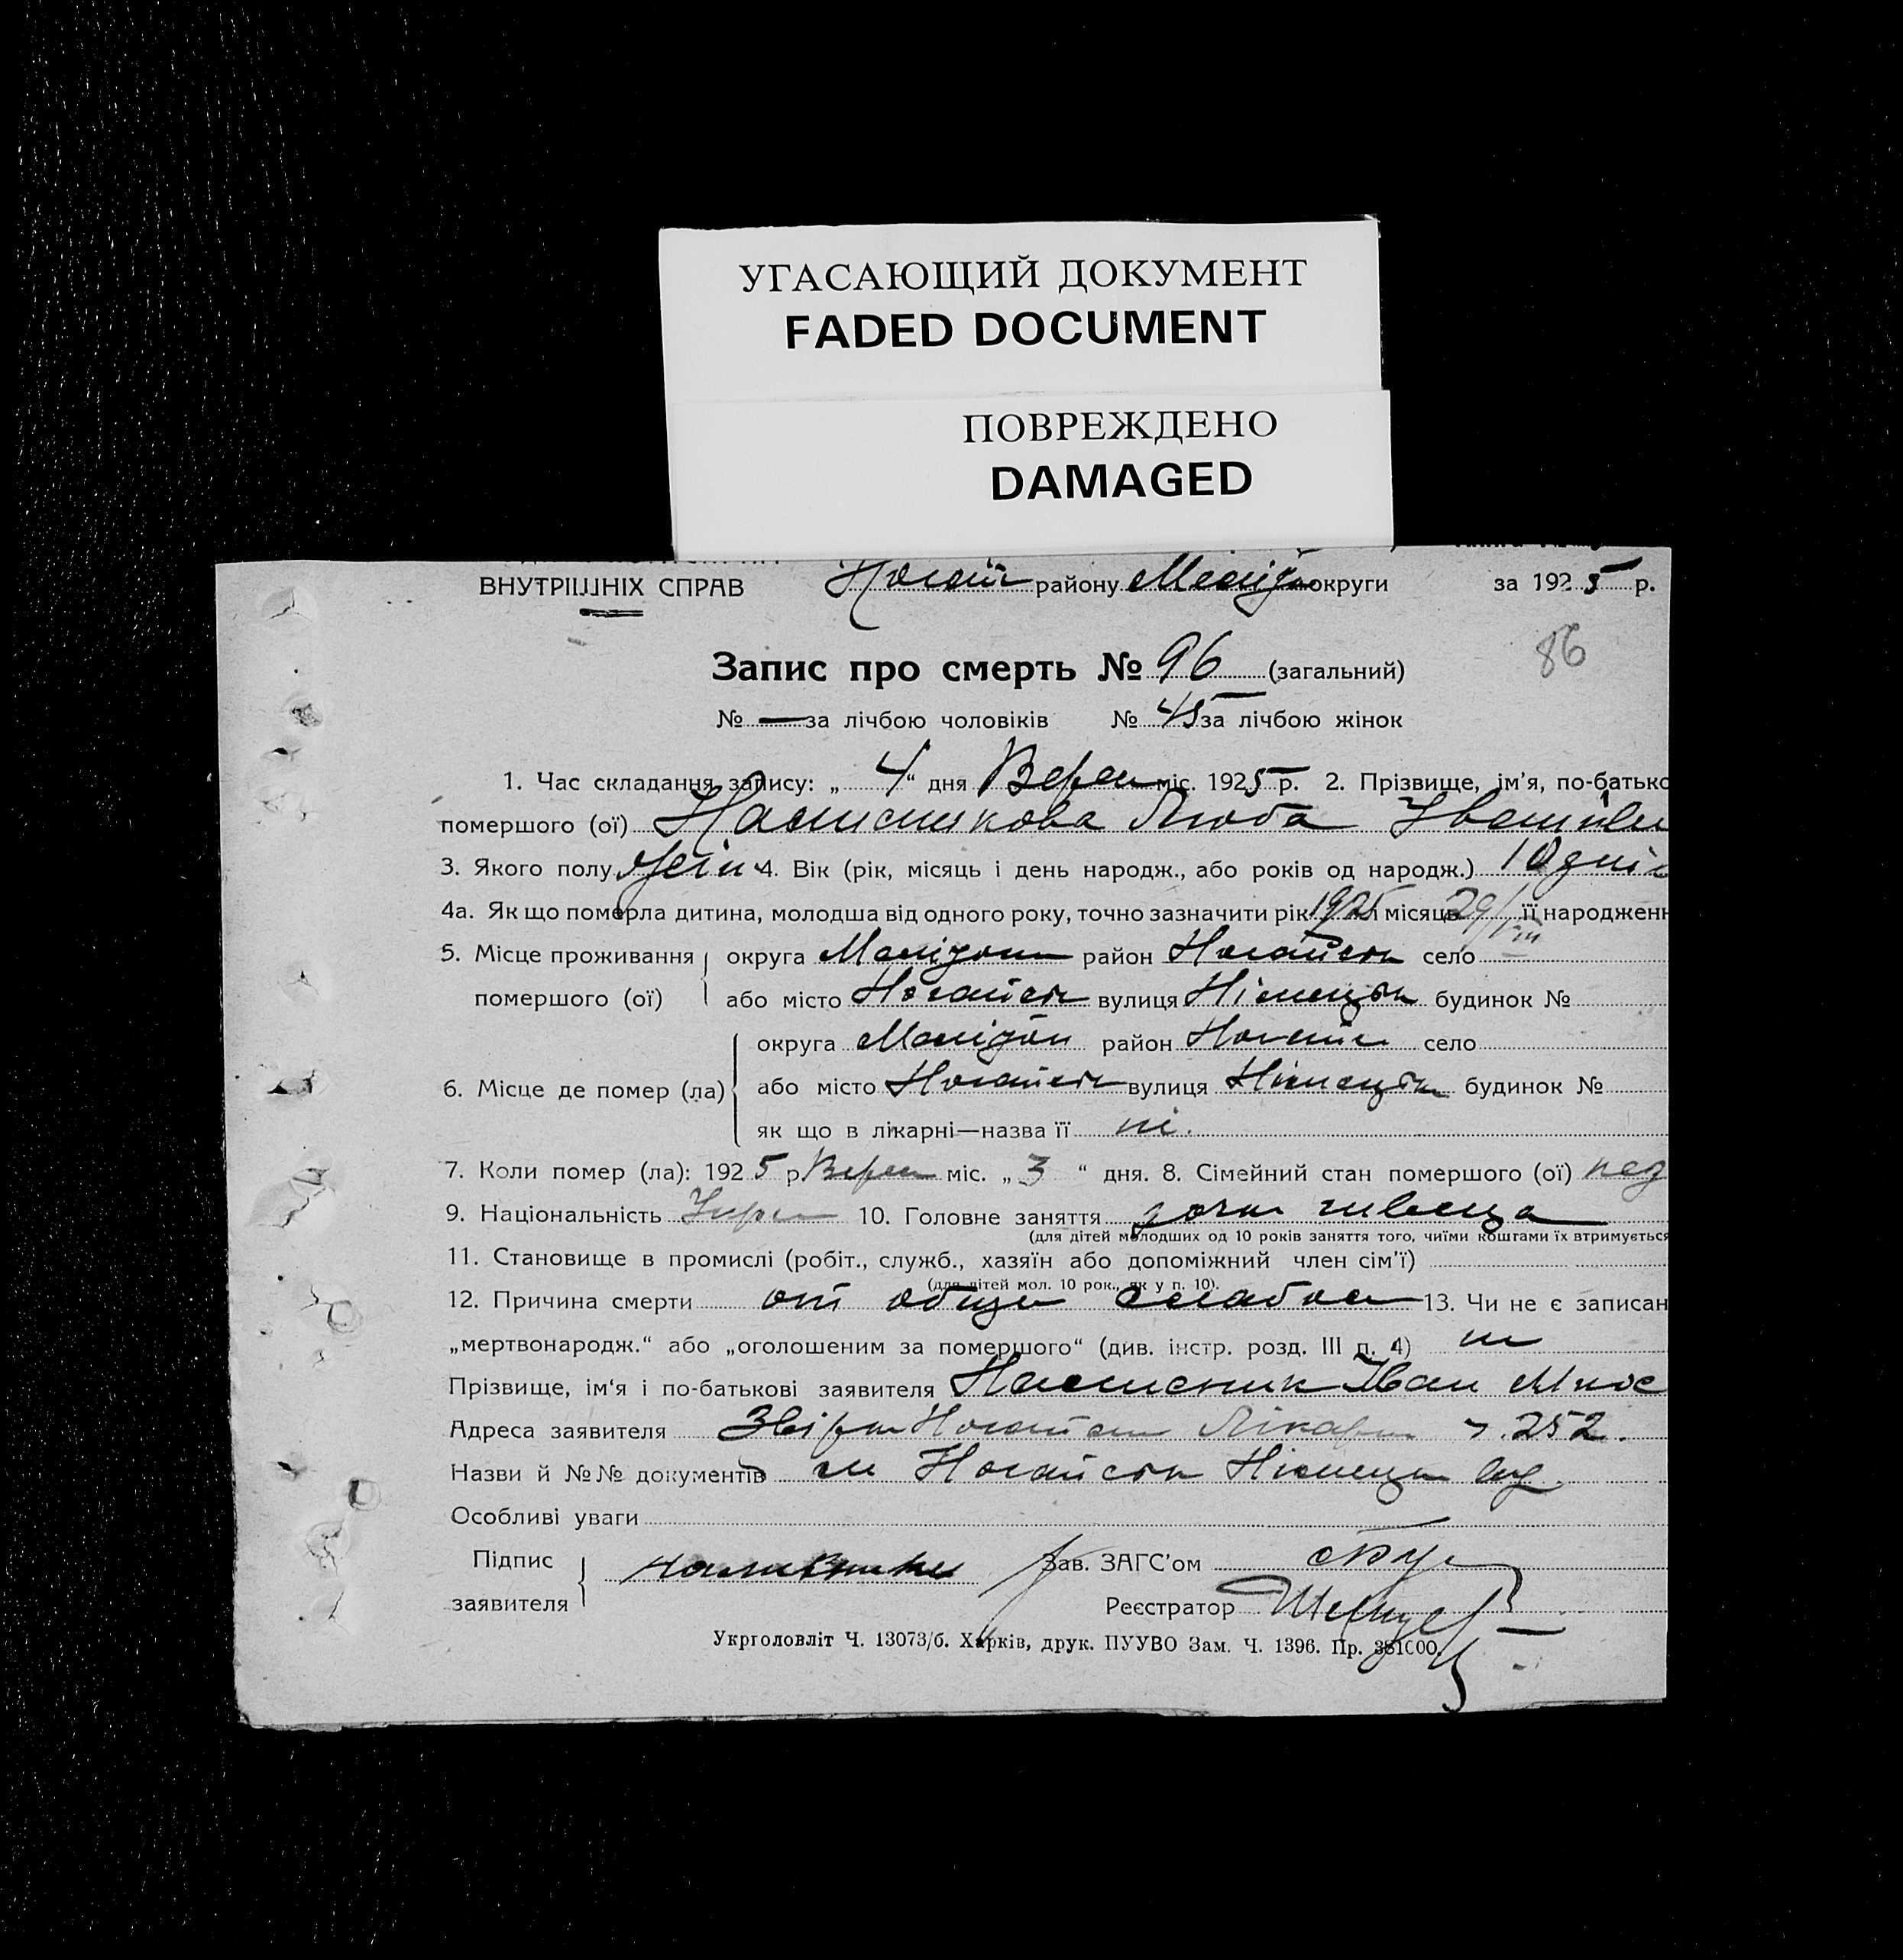 УГАСАЮЩИЙ ДОКУМЕНТ
FADED DOCUMENT
ПОВРЕЖДЕНО
DAMAGED
ВНУТРІШНІХ СПРАВ району округи за 1925 р.
86
Запис про смерть № 96 (загальний)
№ — за лічбою чоловіків № 45 за лічбою жінок
1. Час складання запису: „4“ дня Верес міс. 1925 р. 2. Прізвище, ім'я, по-батько
помершого (ої) Люба
3. Якого полу жін 4. Вік (рік, місяць і день народж., або років од народж.) 10 дні
4а. Як що померла дитина, молодша від одного року, точно зазначити рік 1925 місяць 29/ її народженн
5. Місце проживання округа район Ногайськ село
помершого (ої) або місто Ногайськ вулиця Німецьк будинок №
округа район село
6. Місце де помер (ла) або місто Ногайськ вулиця Німецьк будинок №
як що в лікарні—назва її ні.
7. Коли помер (ла): 1925 р. Верес міс. „3“ дня. 8. Сімейний стан помершого (ої)
9. Національність Укр 10. Головне заняття дочка шевця
(для дітей молодших од 10 років заняття того, чиїми коштами їх втримується
11. Становище в промислі (робіт., служб., хазяїн або допоміжний член сім'ї)
(для дітей мол. 10 рок., як у п. 10).
12. Причина смерти от общ слабос 13. Чи не є записан
„мертвонародж.“ або „оголошеним за помершого“ (див. інстр. розд. III п. 4) ні
Прізвище, ім'я і по-батькові заявителя Іван
Адреса заявителя 252.
Назви й №№ документів м Ногайськ Німецьк
Особливі уваги
Підпис Зав. ЗАГС'ом
заявителя Реєстратор
Укрголовліт Ч. 13073/б. Харків, друк. ПУУВО Зам. Ч. 1396. Пр. 381000.